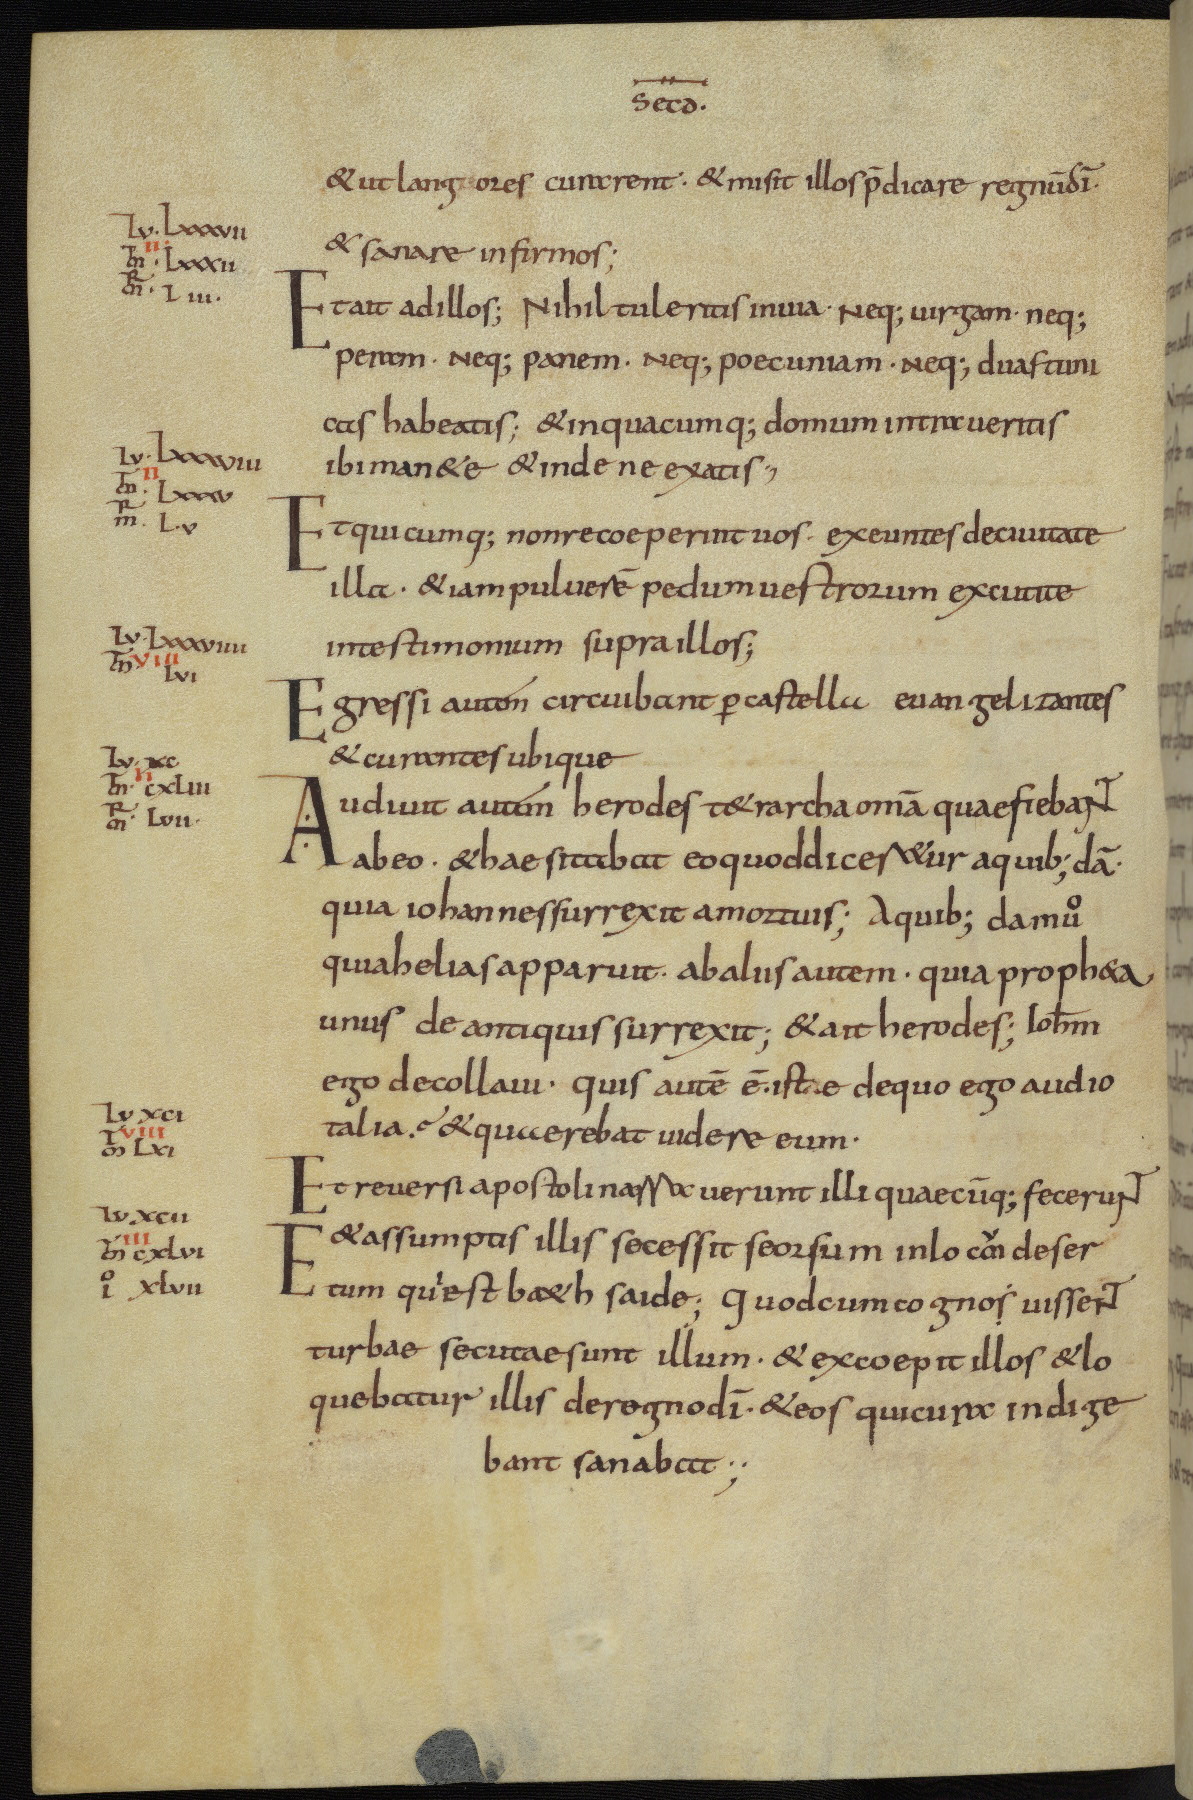 Secd.
& ut langores curarent · & misit illos p̄dicare regnū dī ·
& sanare infirmos;
Lv · Lxxxvii
m̄ · ii Lxxxii
m̄R · Liii ·
Et ait ad illos; Nihil tuleritis in uia · neq; uirgam · neq;
peram · neq; panem · neq; poecuniam · neq; duas tuni
cas habeatis; & in quacumq; domum intraueritis
ibi man&e & inde ne exatis
Lv · Lxxxviii
m̄ · ii Lxxxv
m̄R · L · v
Et quicumq; non recoeperint uos · exeuntes de ciuitate
illa · & iam puluerē pedum uestrorum excutite
in testimonium supra illos;
Lv · Lxxxviiii
m̄ viii Lvi
Egressi autem circuibant p castella euangelizantes
& curantes ubique
Lv · xc
m̄ · ii cxLiii
m̄R · Lvii ·
Audiuit autem herodes t&rarcha omā quae fiebant
ab eo · & haesitabat eo quod dicer&ur a quib; dā ·
quia iohannes surrexit a mortuis; A quib; damu̇
quia helias apparuit · ab aliis autem · quia proph&a
unus de antiquis surrexit; & ait herodes; Iohm̄
ego decollaui · quis autē ē · iste de quo ego audio
talia · & quaerebat uidere eum ·
Lv xci
m̄ viii Lxi
Et reuersi apostoli narrauerunt illi quaecūq; fecerunt
Lv · xcii
m̄ iii cxLvi
i° xLvii
& assumptis illis secessit seorsum in locum deser
Etum qui est b&h saide; Quod cum cognouissent
turbae secutae sunt illum · & excoepit illos & lo
quebatur illis de regno dī · & eos qui cura indige
bant sanabat ·;